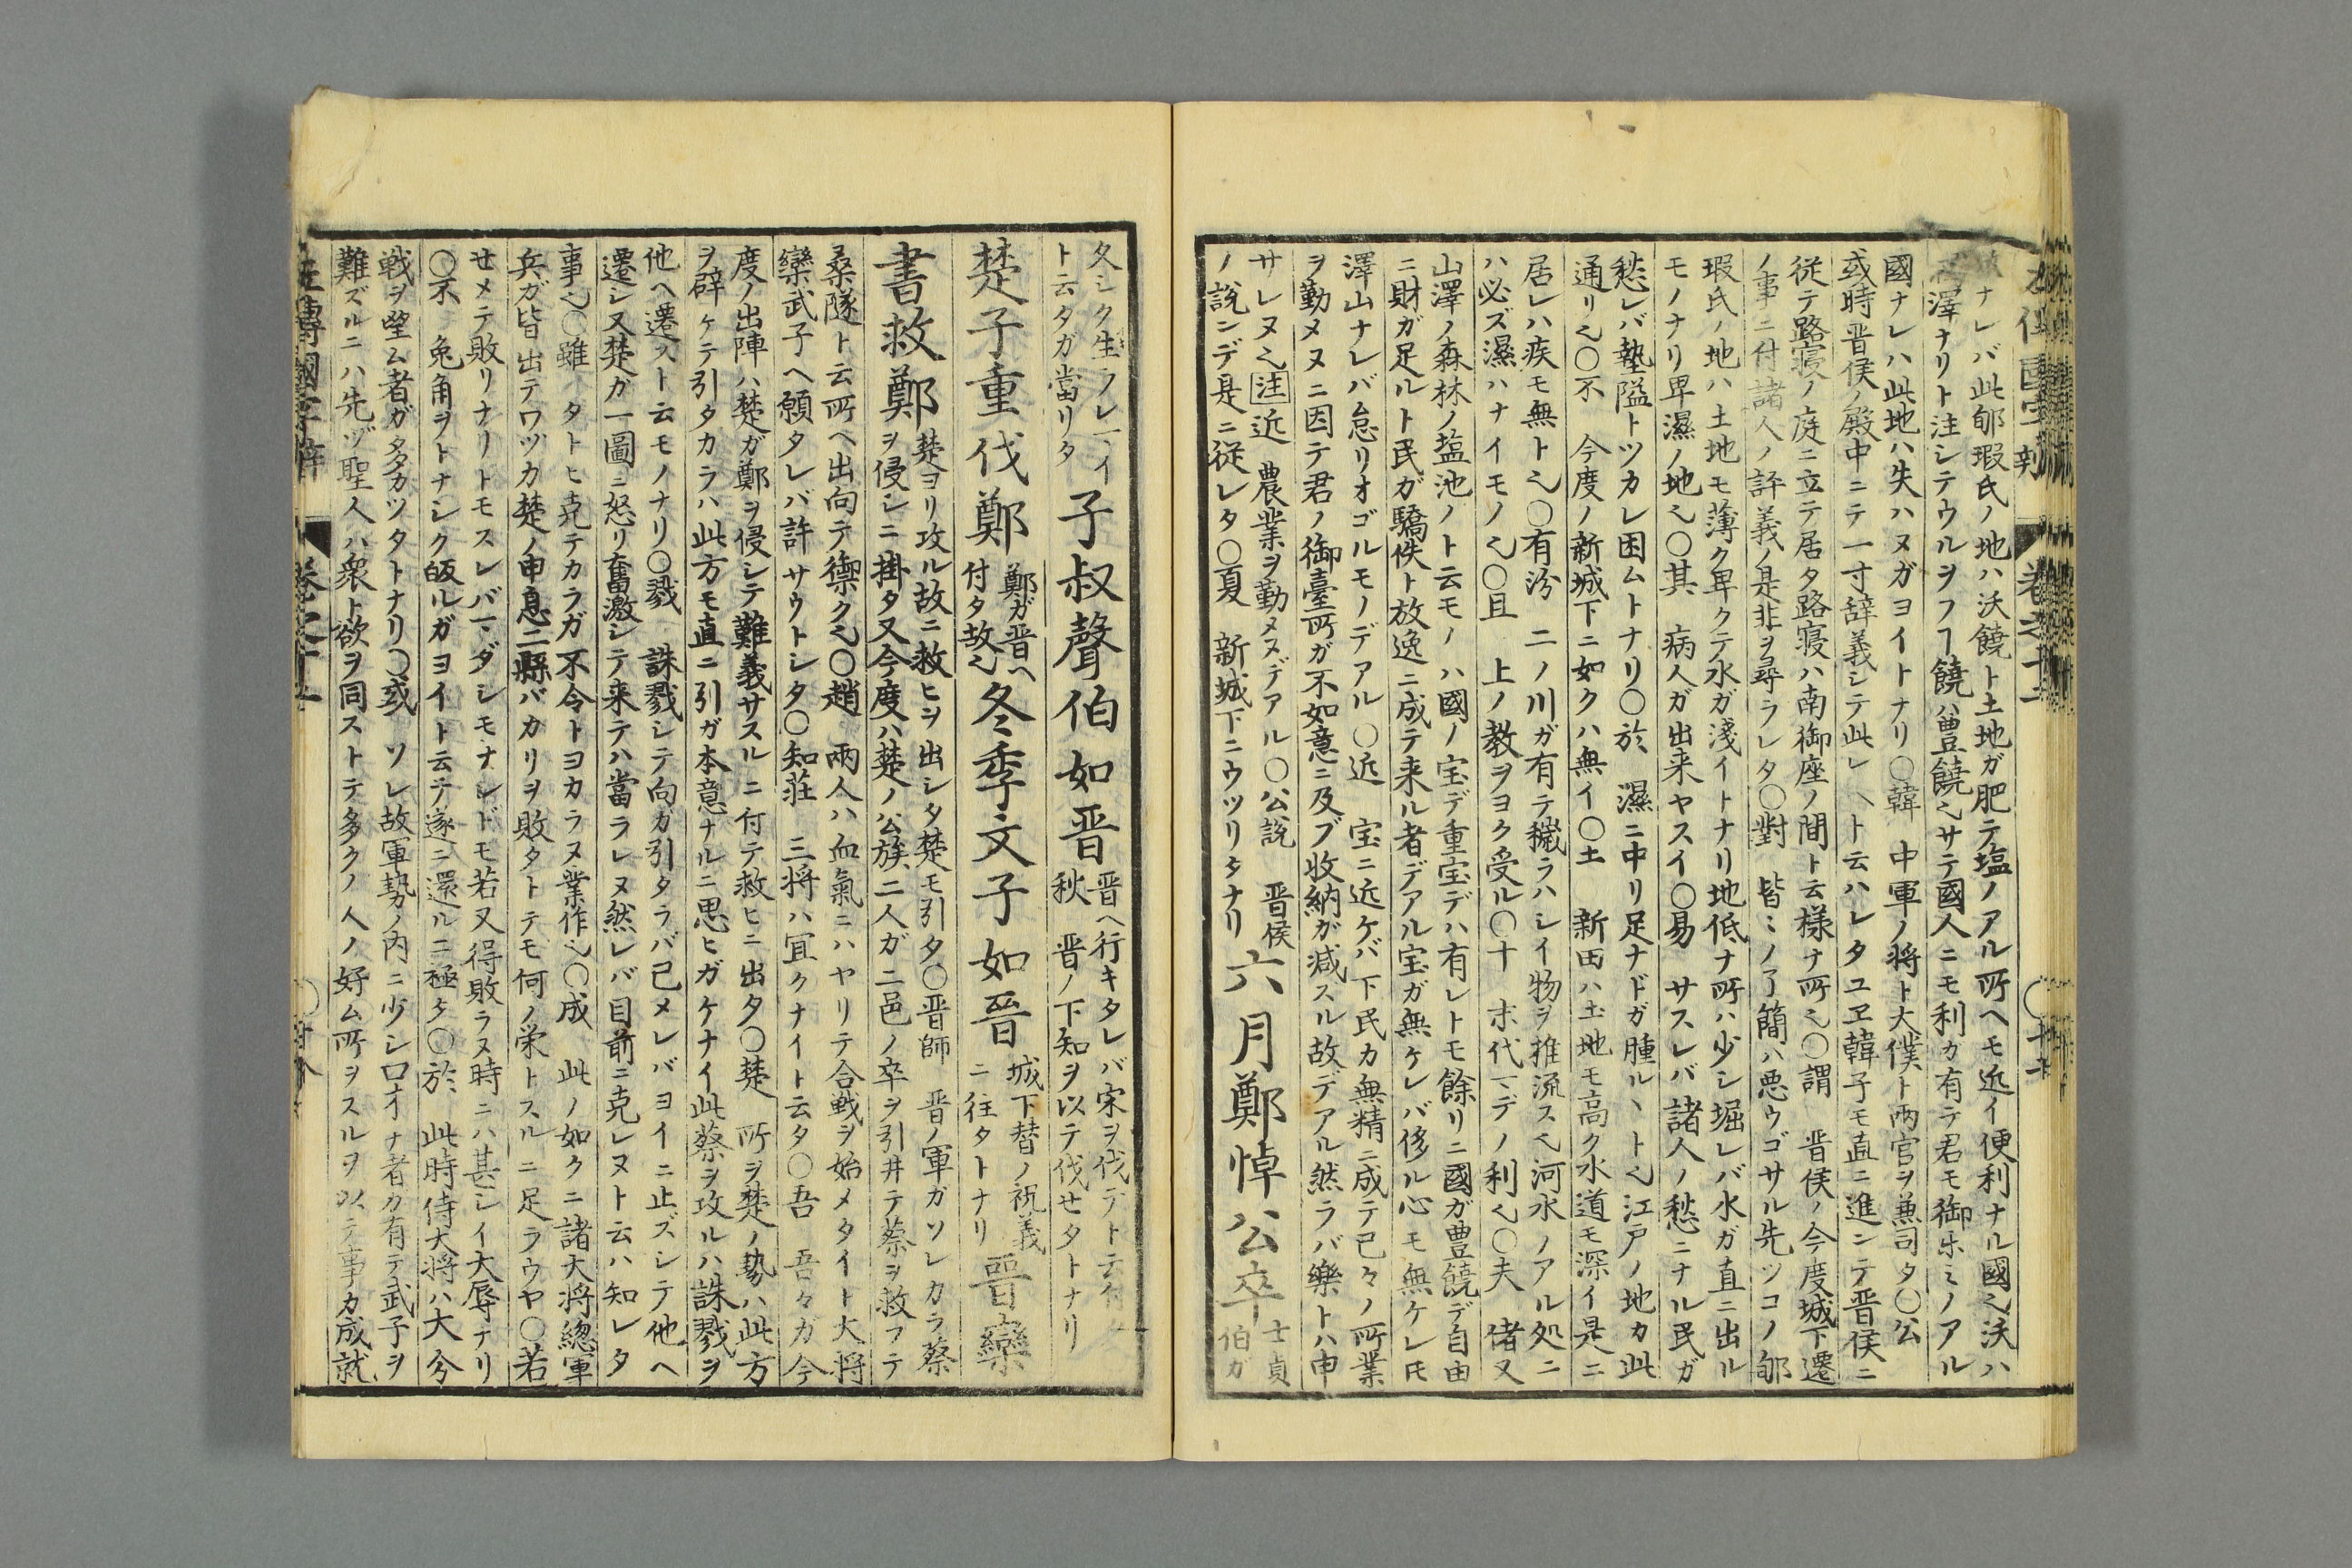 ナレバ此郇瑕氏ノ地ハ沃饒ト土地ガ肥テ塩ノアル所ヘモ近イ便利ナル國也沃ハ
澤ナリト注シテウルヲフヿ饒ハ豊饒也サテ國人ニモ利カ有テ君モ御楽ミノアル
國ナレハ此地ハ失ハヌガヨイトナリ〇韓 中軍ノ将ト大僕ト兩官ヲ兼司タ〇公
或時晋侯ノ殿中ニテ一寸辞義シテ此レヘト云ハレタユヱ韓子モ直ニ進ンテ晋侯ニ
従テ路寝ノ庭ニ立テ居タ路寝ハ南御座ノ間ト云様ナ所也〇謂 晋侯ノ今度城下遷
ノ事ニ付諸人ノ評義ノ是非ヲ尋ラレタ〇對 皆ミノ了簡ハ悪ウゴサル先ツコノ郇
瑕氏ノ地ハ土地モ薄ク卑クテ水ガ淺イトナリ地低ナ所ハ少シ堀レバ水ガ直ニ出ル
モノナリ卑濕ノ地也〇其 病人ガ出来ヤスイ〇易 サスレバ諸人ノ愁ニナル民ガ
愁レバ墊隘トツカレ困ムトナリ〇於 濕ニ中リ足ナドガ腫ルヽト也江戸ノ地カ此
通リ也〇不 今度ノ新城下ニ如クハ無イ〇土 新田ハ土地モ高ク水道モ深イ是ニ
居レハ疾モ無ト也〇有汾 二ノ川ガ有テ穢ラハシイ物ヲ推流ス也河水ノアル処ニ
ハ必ズ濕ハナイモノ也〇且 上ノ教ヲヨク受ル〇十 末代マデノ利也〇夫 偖又
山澤ノ森林ノ塩池ノト云モノハ國ノ宝デ重宝デハ有レトモ餘リニ國ガ豊饒デ自由
ニ財ガ足ルト民ガ驕佚ト放逸ニ成テ来ル者デアル宝ガ無ケレバ侈ル心モ無ケレ𪜈
澤山ナレバ怠リオゴルモノデアル〇近 宝ニ近ケバ下民カ無精ニ成テ己々ノ所業
ヲ勤メヌニ因テ君ノ御臺所ガ不如意ニ及ブ收納ガ減スル故デアル然ラバ樂トハ申
サレヌ也注近 農業ヲ勤メヌデアル〇公説 晋侯
ノ説ンデ是ニ従レタ〇夏 新城下ニウツリタナリ
六月鄭悼公卒
士貞
伯ガ
久シク生ラレマイ
ト云タガ當リタ
子叔聲伯如晋
晋ヘ行キタレバ宋ヲ伐テト云付
秋 晋ノ下知ヲ以テ伐セタトナリ
楚子重伐鄭
鄭ガ晋ヘ
付タ故也
冬季文子如晉
城下替ノ祝義
ニ往タトナリ
晋欒
書救鄭
楚ヨリ攻ル故ニ救ヒヲ出シタ楚モ引タ〇晋師 晋ノ軍ガソレカラ蔡
ヲ侵シニ掛タ又今度ハ楚ノ公族二人ガ二邑ノ卒ヲ引井テ蔡ヲ救フテ
桑隧ト云所ヘ出向テ禦ク也〇趙 兩人ハ血氣ニハヤリテ合戦ヲ始メタイト大将
欒武子ヘ願タレバ許サウトシタ〇知荘 三将ハ冝クナイト云タ〇吾 吾々ガ今
度ノ出陣ハ楚ガ鄭ヲ侵シテ難義サスルニ付テ救ヒニ出タ〇楚 所ヲ楚ノ勢ハ此方
ヲ辟ケテ引タカラハ此方モ直ニ引ガ本意ナルニ思ヒガケナイ此蔡ヲ攻ルハ誅戮ヲ
他ヘ遷スト云モノナリ〇戮 誅戮シテ向ガ引タラバ已メレバヨイニ止ズシテ他ヘ
遷シ又楚ガ一圖ニ怒リ奮激シテ来テハ當ラレヌ然レバ目前ニ克レヌト云ハ知レタ
事也〇雖 タトヒ克テカラガ不令トヨカラヌ業作也〇成 此ノ如クニ諸大将總軍
兵ガ皆出テワツカ楚ノ申息二縣バカリヲ敗タトテモ何ノ栄トスルニ足ラウヤ〇若
せメテ敗リナリトモスレバマダシモナレドモ若又得敗ラヌ時ニハ甚シイ大辱ナリ
〇不 兔角ヲトナシク皈ルガヨイト云テ遂ニ還ルニ極タ〇於 此時侍大将ハ大分
戦ヲ望ム者ガ多カツタトナリ〇或 ソレ故軍勢ノ内ニ少シ口オナ者カ有テ武子ヲ
難ズルニハ先ヅ聖人ハ衆ト欲ヲ同ストテ多クノ人ノ好ム所ヲスルヲ以テ事カ成就